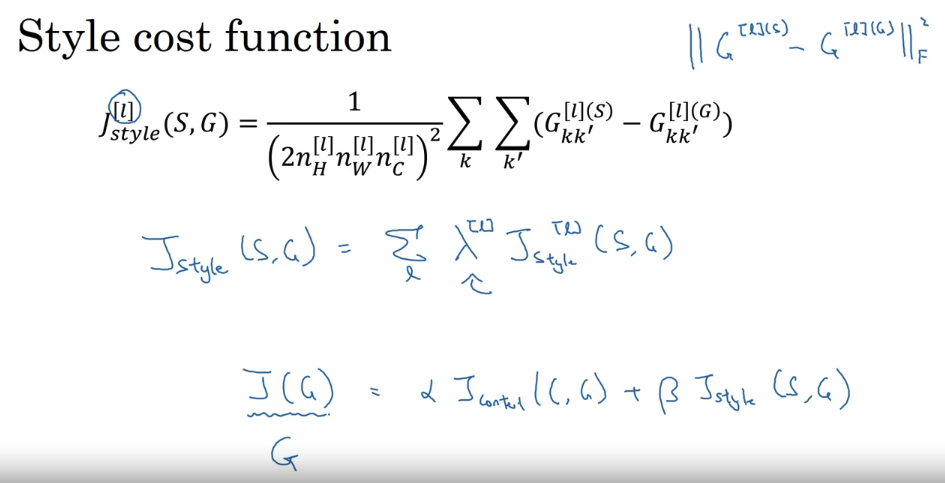 Style cost function
‖ G^[l](S) − G^[l](G) ‖_F^2
J_style^[l] (S, G) = 1 / (2n_H^[l] n_W^[l] n_C^[l])^2 ∑_k ∑_k′ (G_kk′^[l](S) − G_kk′^[l](G))
J_style (S, G) = ∑_l λ^[l] J_style^[l] (S, G)
J(G) = α J_content (C, G) + β J_style (S, G)
G